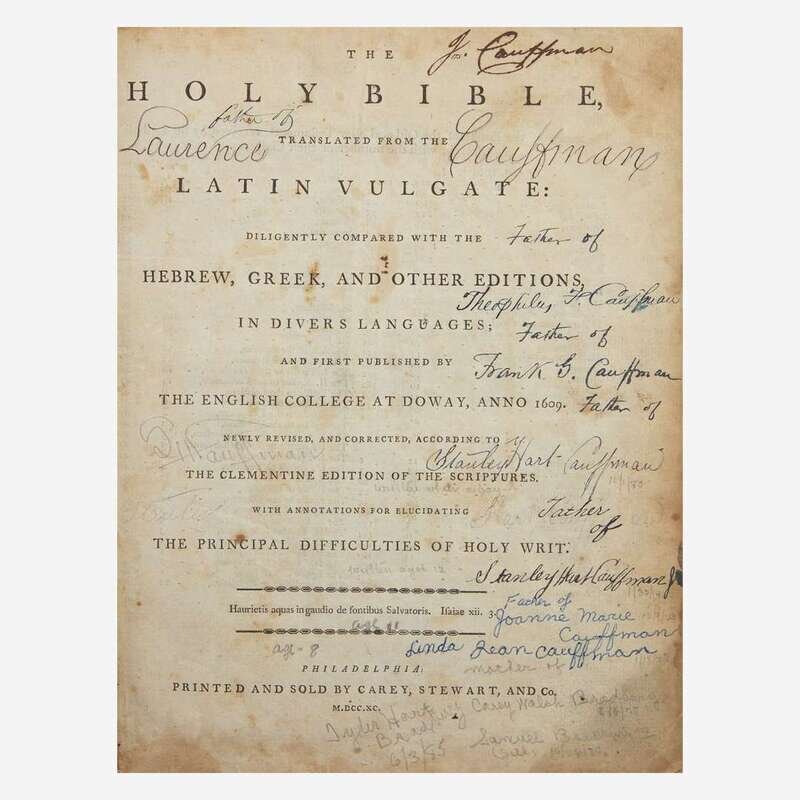 THE
Jos. Cauffman
HOLY BIBLE,
father of
Laurence Cauffman
TRANSLATED FROM THE
LATIN VULGATE:
DILIGENTLY COMPARED WITH THE
Father of
HEBREW, GREEK, AND OTHER EDITIONS,
Theophilus F. Cauffman
IN DIVERS LANGUAGES;
Father of
AND FIRST PUBLISHED BY
Frank G. Cauffman
THE ENGLISH COLLEGE AT DOWAY, ANNO 1609.
Father of
NEWLY REVISED, AND CORRECTED, ACCORDING TO
Stanley Hart Cauffman
THE CLEMENTINE EDITION OF THE SCRIPTURES.
WITH ANNOTATIONS FOR ELUCIDATING
Father
of
THE PRINCIPAL DIFFICULTIES OF HOLY WRIT.
written aged 12
Stanley Hart Cauffman Jr
Haurietis aquas in gaudio de fontibus Salvatoris. Isaiae xii. 3.
Father of
Joanne Marie
Cauffman
age 11
age - 8
Linda Jean Cauffman
mother of
PHILADELPHIA:
PRINTED AND SOLD BY CAREY, STEWART, AND Co.
M.DCC.XC.
Carey Walsh
6/3/85
Samuel